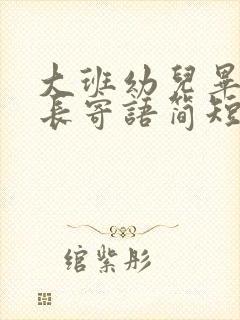 大班幼兒畢
長寄語簡短
綰紫彤